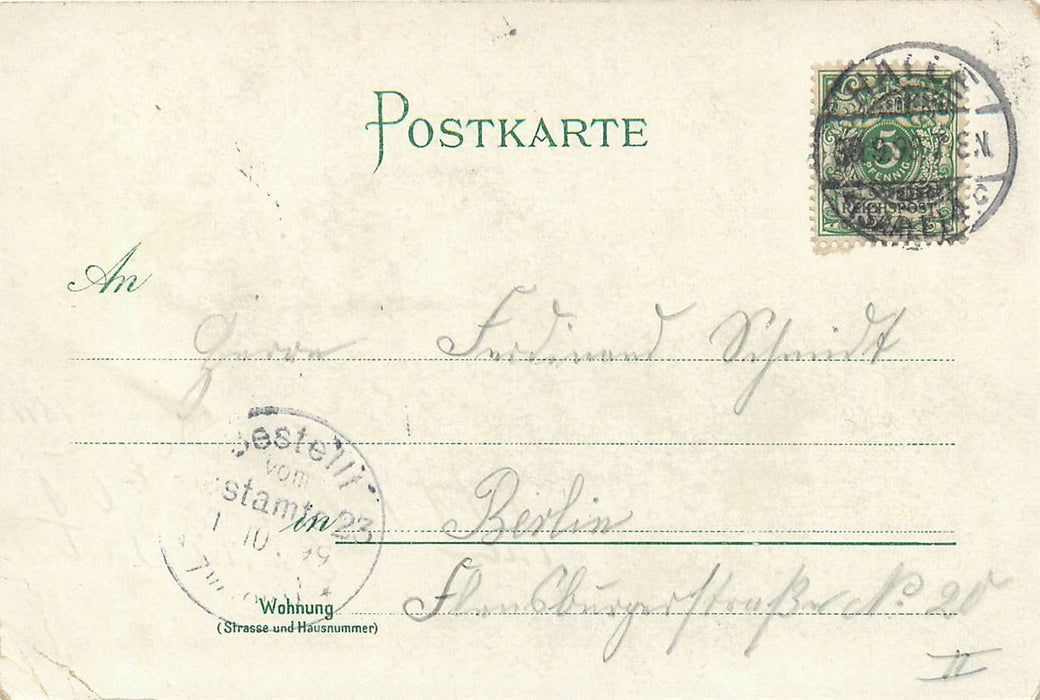 POSTKARTE
HALLE
5
PFENNIG
REICHSPOST
An
Herrn Ferdinand Schmidt
Bestellt
vom
Postamte 23
1 10 99
in Berlin
Wohnung
(Strasse und Hausnummer)
Flensburgerstraße No. 20
II